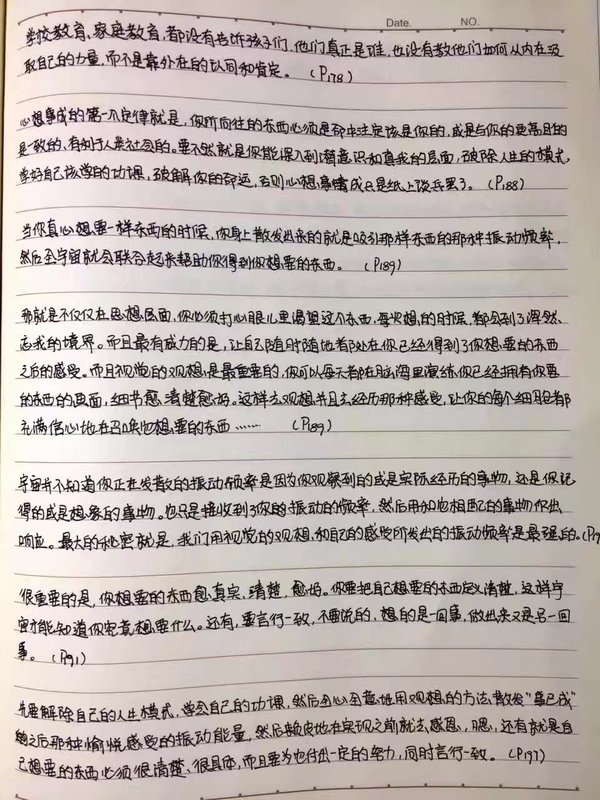 Date. NO.
学校教育、家庭教育,都没有告诉孩子们,他们真正是谁,也没有教他们如何从内在汲
取自己的力量,而不是靠外在的认同和肯定。 (P178)
心想事成的第一个定律就是,你所向往的东西必须是命中注定该是你的,或是与你的更高目的
是一致的、有利于人类社会的。要不然就是你能深入到潜意识和真我的层面,破除人生的模式,
学好自己该学的功课,破解你的命运,否则心想事成只是纸上谈兵罢了。 (P188)
当你真心想要一样东西的时候,你身上散发出来的就是吸引那样东西的那种振动频率,
然后全宇宙就会联合起来帮助你得到你想要的东西。 (P189)
那就是不仅仅在思想层面,你必须打心眼儿里渴望这个东西,每次想的时候,都会到了浑然
忘我的境界。而且最有威力的是,让自己随时随地都处在你已经得到了你想要的东西
之后的感受。而且视觉的观想是最重要的,你可以每天都在脑海里演练你已经拥有你要
的东西的画面,细节愈清楚愈好。这样去观想并且去经历那种感觉,让你的每个细胞都
充满信心地在召唤你想要的东西…… (P189)
宇宙并不知道你正在发散的振动频率是因为你观察到的或是实际经历的事物,还是你记
得的或是想象的事物。它只是接收到了你的振动的频率,然后用和它相匹配的事物作出
响应。最大的秘密就是,我们用视觉的观想,和自己的感受所发出的振动频率是最强的。(P1
很重要的是,你想要的东西愈真实、清楚,愈好。你要把自己想要的东西定义清楚,这样宇
宙才能知道你究竟想要什么。还有,要言行一致,不要说的、想的是一回事,做出来又是另一回
事。 (P191)
先要解除自己的人生模式,学会自己的功课,然后全心全意地用观想的方法,散发“事已成”
之后那种愉悦感受的振动能量,然后赖皮地在实现之前就去感恩,嗯,还有就是自
己想要的东西必须很清楚、很具体,而且要为它付出一定的努力,同时言行一致。 (P197)